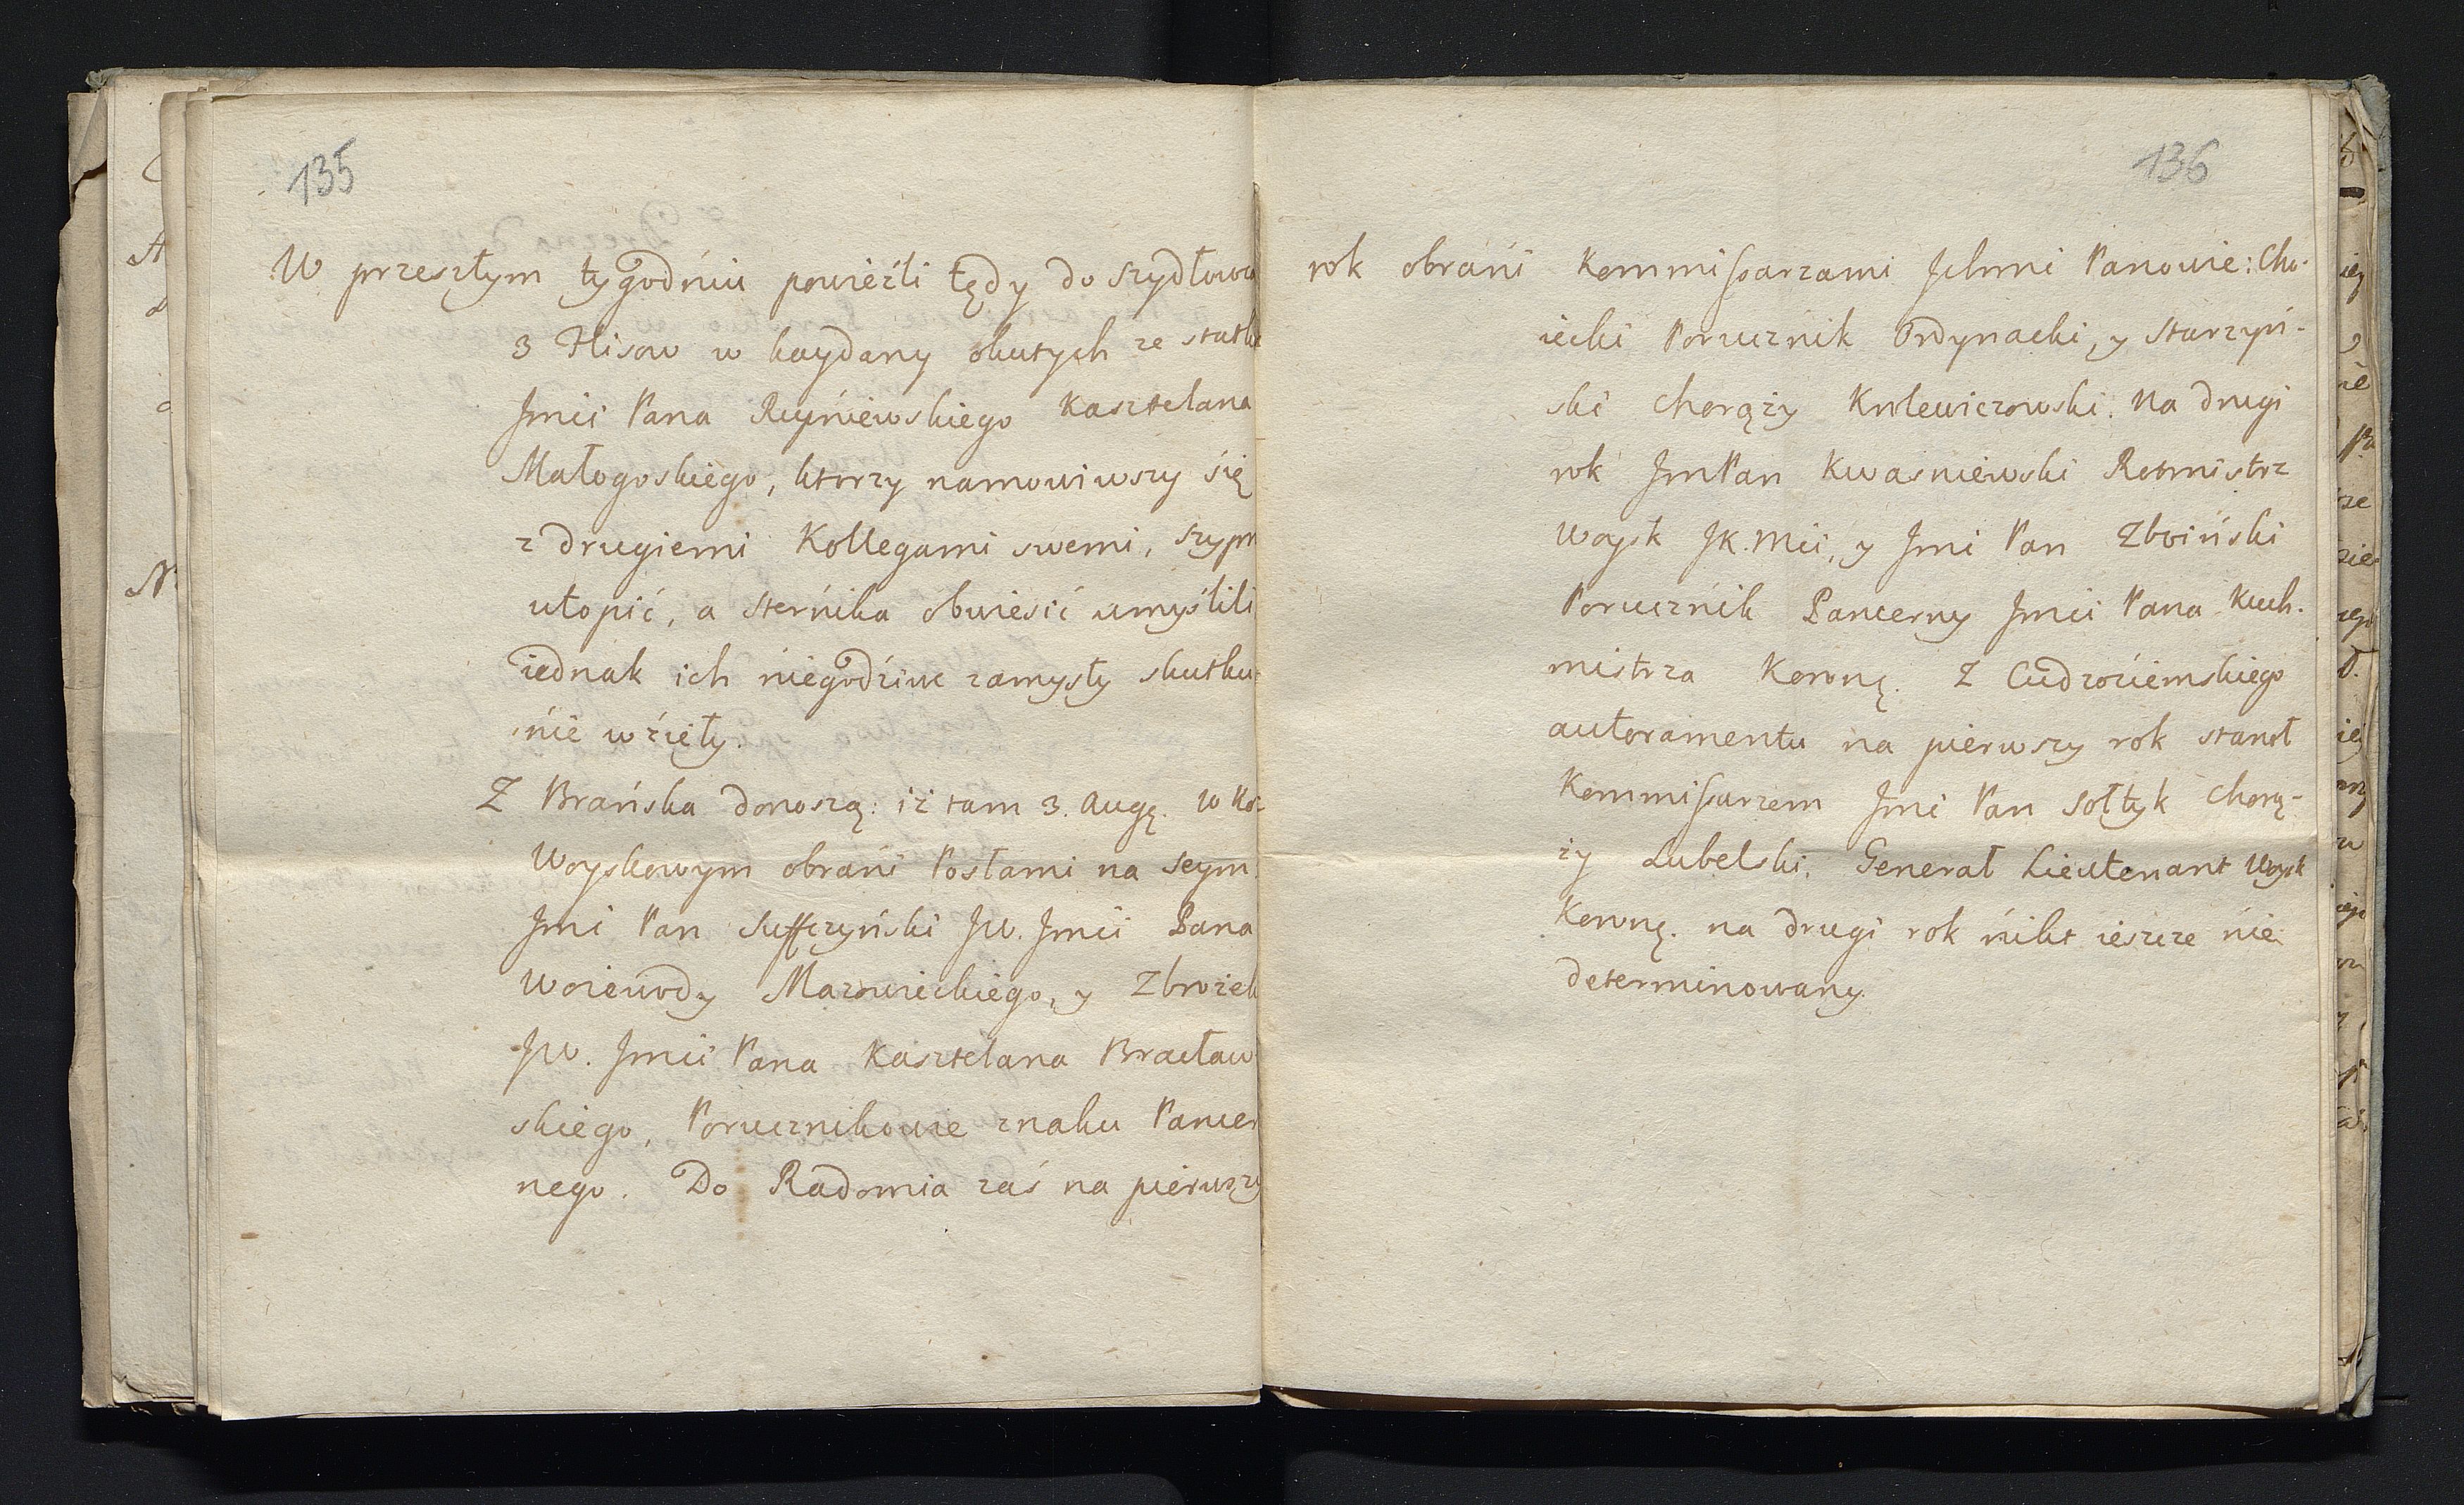 135
W przeszłym tygodńiu powieźli tędy do Szydłowa
3 Flisow w kaydany okutych ze statk
Jmći Pana Ruśniewskiego Kasztelana
Małogoskiego, ktorzy namowiwszy się
z drugiemi Kollegami swemi, szypr
utopić, a sterńika obwieśić umyślili
iednak ich niegodźiwe zamysły skutku
nie wźięły.
Z Brańska donoszą: iż tam 3. Augę. w Koł
Woyskowym obrańi Posłami na Seym
Jmć Pan Suffczyński JW. Jmći Pana
Woiewody Mazowieckiego, y Zbrożek
JW. Jmći Pana Kasztelana Bracław
skiego, Porucznikowie znaku Pancer
nego. Do Radomia zaś na pierwszy
136
rok obrańi Kommissarzami Jchmć Panowie: Cho-
iecki Porucznik Ordynacki, y Starzyń-
ski Chorąży Krolewiczowski. Na drugi
rok JmPan Kwasniewski Rotmistrz
Woysk JK. Mći, y Jmć Pan Zboiński
Porucznik Pancerny Jmći Pana Kuch-
mistrza Koronę. Z Cudzoźiemskiego
autoramentu na pierwszy rok stanoł
Kommissarzem Jmć Pan Sołtyk Chorą-
ży Lubelski, Generał Lieutenant Woysk
Koronę. na drugi rok ńikt ieszcze ńie
determinowany.